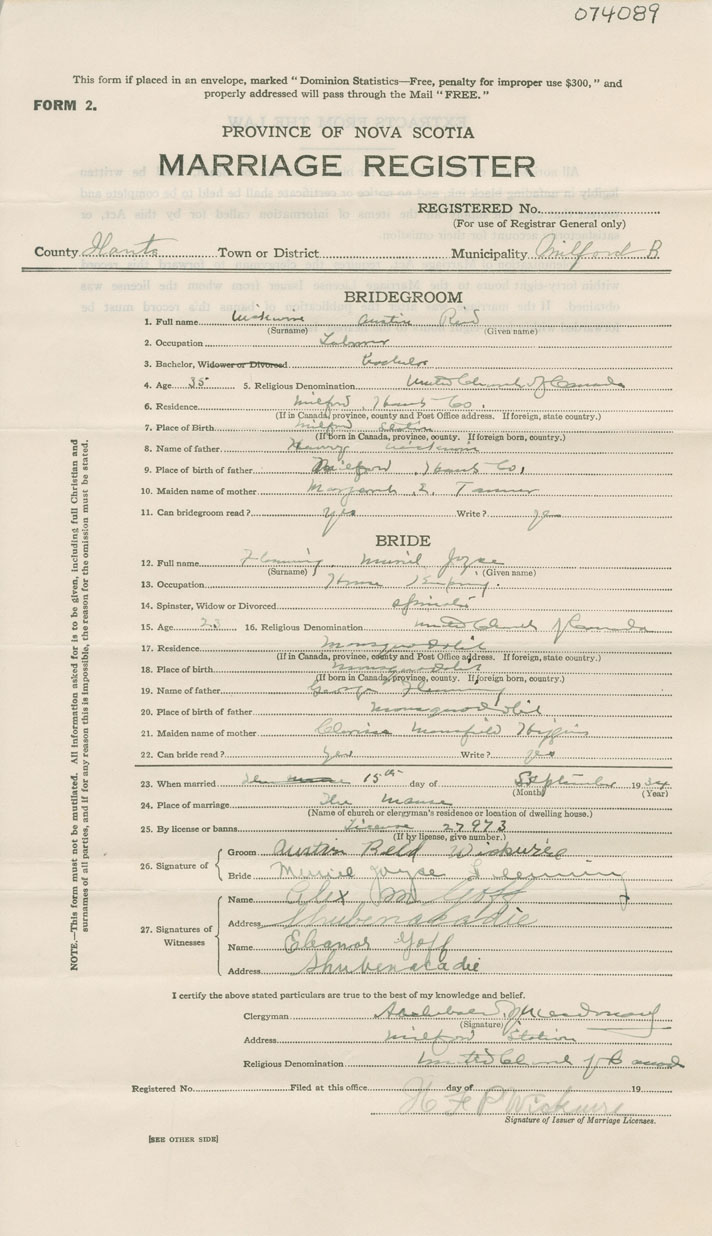 074089
This form if placed in an envelope, marked "Dominion Statistics—Free, penalty for improper use $300," and
properly addressed will pass through the Mail "FREE."
FORM 2.
PROVINCE OF NOVA SCOTIA
MARRIAGE REGISTER
REGISTERED No.
(For use of Registrar General only)
County Hants Town or District Municipality Milford B
BRIDEGROOM
1. Full name Wickwire Austin Reid
(Surname) (Given name)
2. Occupation Labourer
3. Bachelor, Widower or Divorced Bachelor
4. Age 35 5. Religious Denomination United Church of Canada
6. Residence Milford, Hants Co.
(If in Canada, province, county and Post Office address. If foreign, state country.)
7. Place of Birth Milford Station
(If born in Canada, province, county. If foreign born, country.)
8. Name of father Henry Wickwire
9. Place of birth of father Milford, Hants Co,
10. Maiden name of mother Margaret E. Tanner
11. Can bridegroom read? Yes Write? yes
BRIDE
12. Full name Flemming, Muriel Joyce
(Surname) (Given name)
13. Occupation House Keeping.
14. Spinster, Widow or Divorced Spinster
15. Age 23 16. Religious Denomination United Church of Canada
17. Residence Mosquodobit
(If in Canada, province, county and Post Office address. If foreign, state country.)
18. Place of birth Musquodobit
(If born in Canada, province, county. If foreign born, country.)
19. Name of father George Flemming
20. Place of birth of father Mosquodobit
21. Maiden name of mother Clarissa Mansfield Higgins
22. Can bride read? Yes Write? yes
23. When married 15th day of September 1934
(Month) (Year)
24. Place of marriage The Manse
(Name of church or clergyman's residence or location of dwelling house.)
25. By license or banns License 27973
(If by license, give number.)
26. Signature of Groom Austin Reid Wickwire
Bride Muriel Joyce Flemming
27. Signatures of Witnesses Name Alex M Goff
Address Shubenacadie
Name Eleanor Goff
Address Shubenacadie
I certify the above stated particulars are true to the best of my knowledge and belief.
Clergyman
(Signature)
Address Milford Station
Religious Denomination United Church of Canada
Registered No. Filed at this office day of 19
H F P Wickwire
Signature of Issuer of Marriage Licenses.
[SEE OTHER SIDE]
NOTE.—This form must not be mutilated. All information asked for is to be given, including full Christian and
surnames of all parties, and if for any reason this is impossible, the reason for the omission must be stated.